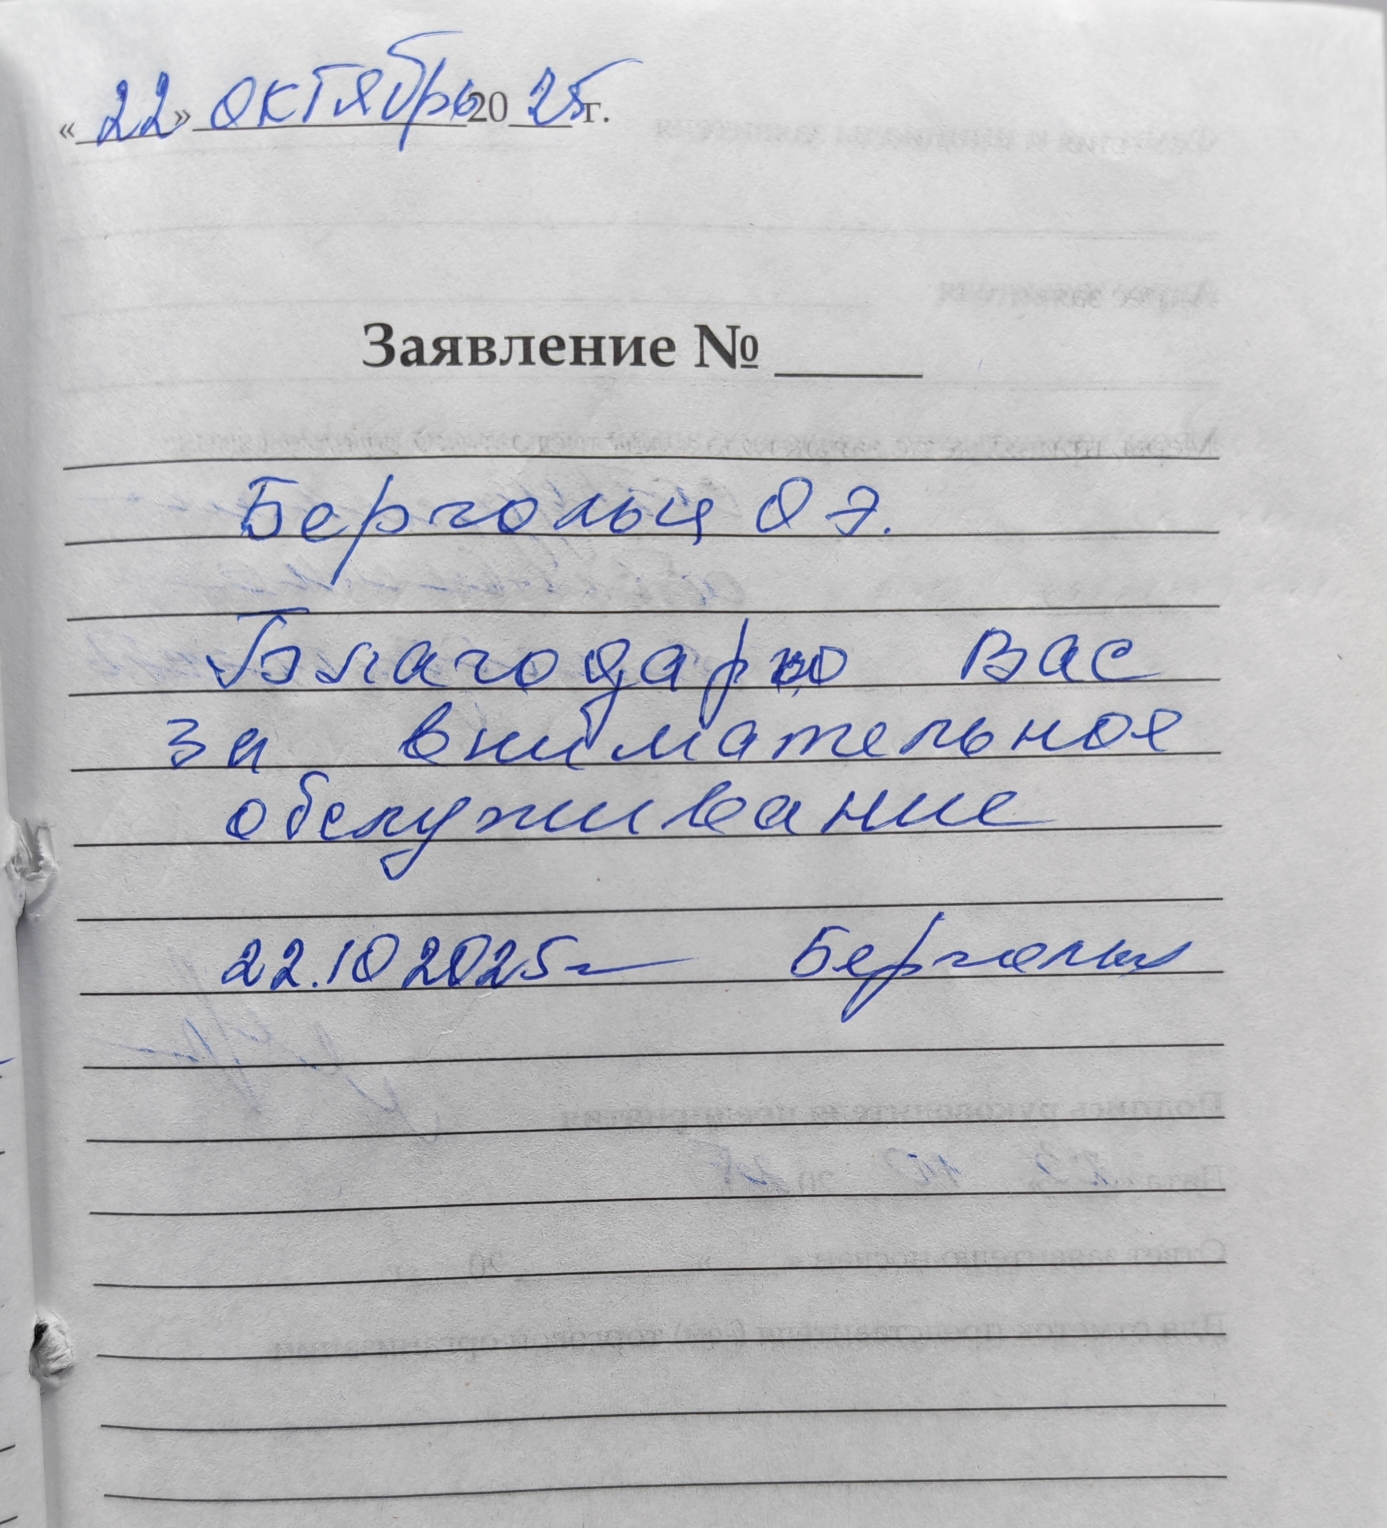 «22» октябрь 2025 г.
Заявление № ____
Бергольц О Э.
Благодарю Вас
за внимательное
обслуживание
22.10 2025 г Бергольц